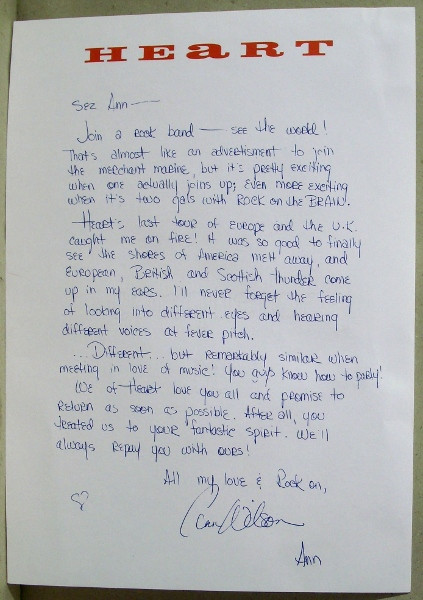 HEaRT
Sez Ann —
Join a rock band — see the world!
That's almost like an advertisment to join
the merchant marine, but it's pretty exciting
when one actually joins up; Even more exciting
when it's two gals with ROCK on the BRAIN.
Heart's last tour of Europe and the U.K.
caught me on fire! It was so good to finally
see the shores of America melt away, and
European, British and Scottish thunder come
up in my ears. I'll never forget the feeling
of looking into different eyes and hearing
different voices at fever pitch.
... Different... but remarkably similar when
meeting in love of music! You guys know how to party!
We of Heart love you all and promise to
return as soon as possible. After all, you
treated us to your fantastic spirit. We'll
always repay you with ours!
All my love & Rock on,
Ann Wilson
Ann